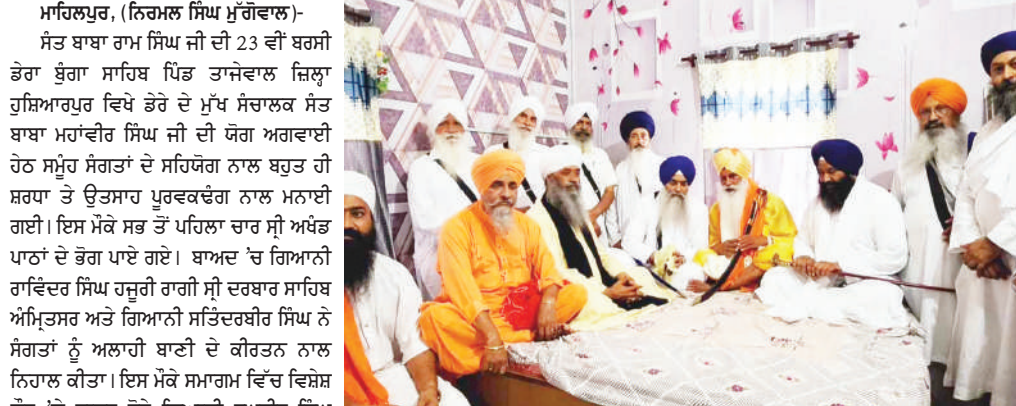 ਮਾਹਿਲਪੁਰ, (ਨਿਰਮਲ ਸਿੰਘ ਮੁੱਗੋਵਾਲ)-
ਸੰਤ ਬਾਬਾ ਰਾਮ ਸਿੰਘ ਜੀ ਦੀ 23 ਵੀਂ ਬਰਸੀ
ਡੇਰਾ ਬੁੰਗਾ ਸਾਹਿਬ ਪਿੰਡ ਤਾਜੇਵਾਲ ਜ਼ਿਲ੍ਹਾ
ਹੁਸ਼ਿਆਰਪੁਰ ਵਿਖੇ ਡੇਰੇ ਦੇ ਮੁੱਖ ਸੰਚਾਲਕ ਸੰਤ
ਬਾਬਾ ਮਹਾਂਵੀਰ ਸਿੰਘ ਜੀ ਦੀ ਯੋਗ ਅਗਵਾਈ
ਹੇਠ ਸਮੂੰਹ ਸੰਗਤਾਂ ਦੇ ਸਹਿਯੋਗ ਨਾਲ ਬਹੁਤ ਹੀ
ਸ਼ਰਧਾ ਤੇ ਉਤਸਾਹ ਪੂਰਵਕਢੰਗ ਨਾਲ ਮਨਾਈ
ਗਈ। ਇਸ ਮੌਕੇ ਸਭ ਤੋਂ ਪਹਿਲਾ ਚਾਰ ਸ੍ਰੀ ਅਖੰਡ
ਪਾਠਾਂ ਦੇ ਭੋਗ ਪਾਏ ਗਏ। ਬਾਅਦ 'ਚ ਗਿਆਨੀ
ਰਾਵਿੰਦਰ ਸਿੰਘ ਹਜੂਰੀ ਰਾਗੀ ਸ੍ਰੀ ਦਰਬਾਰ ਸਾਹਿਬ
ਅੰਮ੍ਰਿਤਸਰ ਅਤੇ ਗਿਆਨੀ ਸਤਿੰਦਰਬੀਰ ਸਿੰਘ ਨੇ
ਸੰਗਤਾਂ ਨੂੰ ਅਲਾਹੀ ਬਾਣੀ ਦੇ ਕੀਰਤਨ ਨਾਲ
ਨਿਹਾਲ ਕੀਤਾ। ਇਸ ਮੌਕੇ ਸਮਾਗਮ ਵਿੱਚ ਵਿਸ਼ੇਸ਼